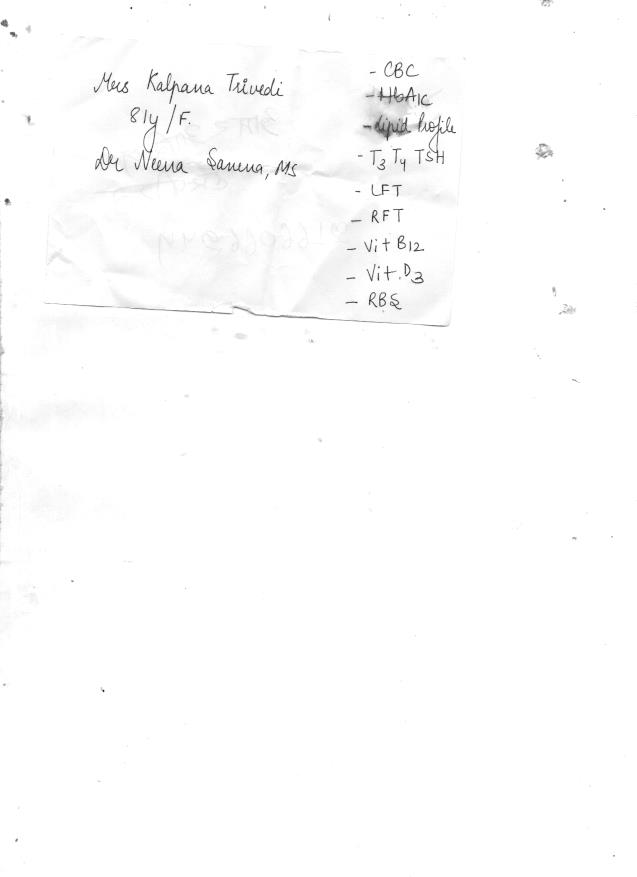 Mrs Kalpana Trivedi
81y/F.
Dr Neena Saxena, MS
- CBC
- HbA1c
- Lipid Profile
- T3 T4 TSH
- LFT
- RFT
- Vit B12
- Vit. D3
- RBS